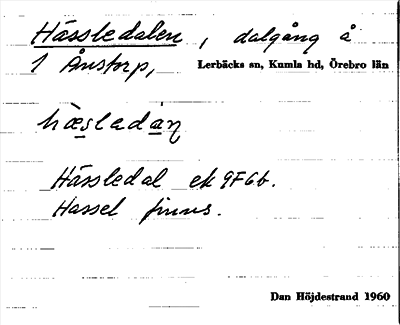 Hässledalen, dalgång å
1 Ånstorp, Lerbäcks sn, Kumla hd, Örebro län
hæsladan
Hässledal ek 9F6b.
Hassel finns.
Dan Höjdestrand 1960